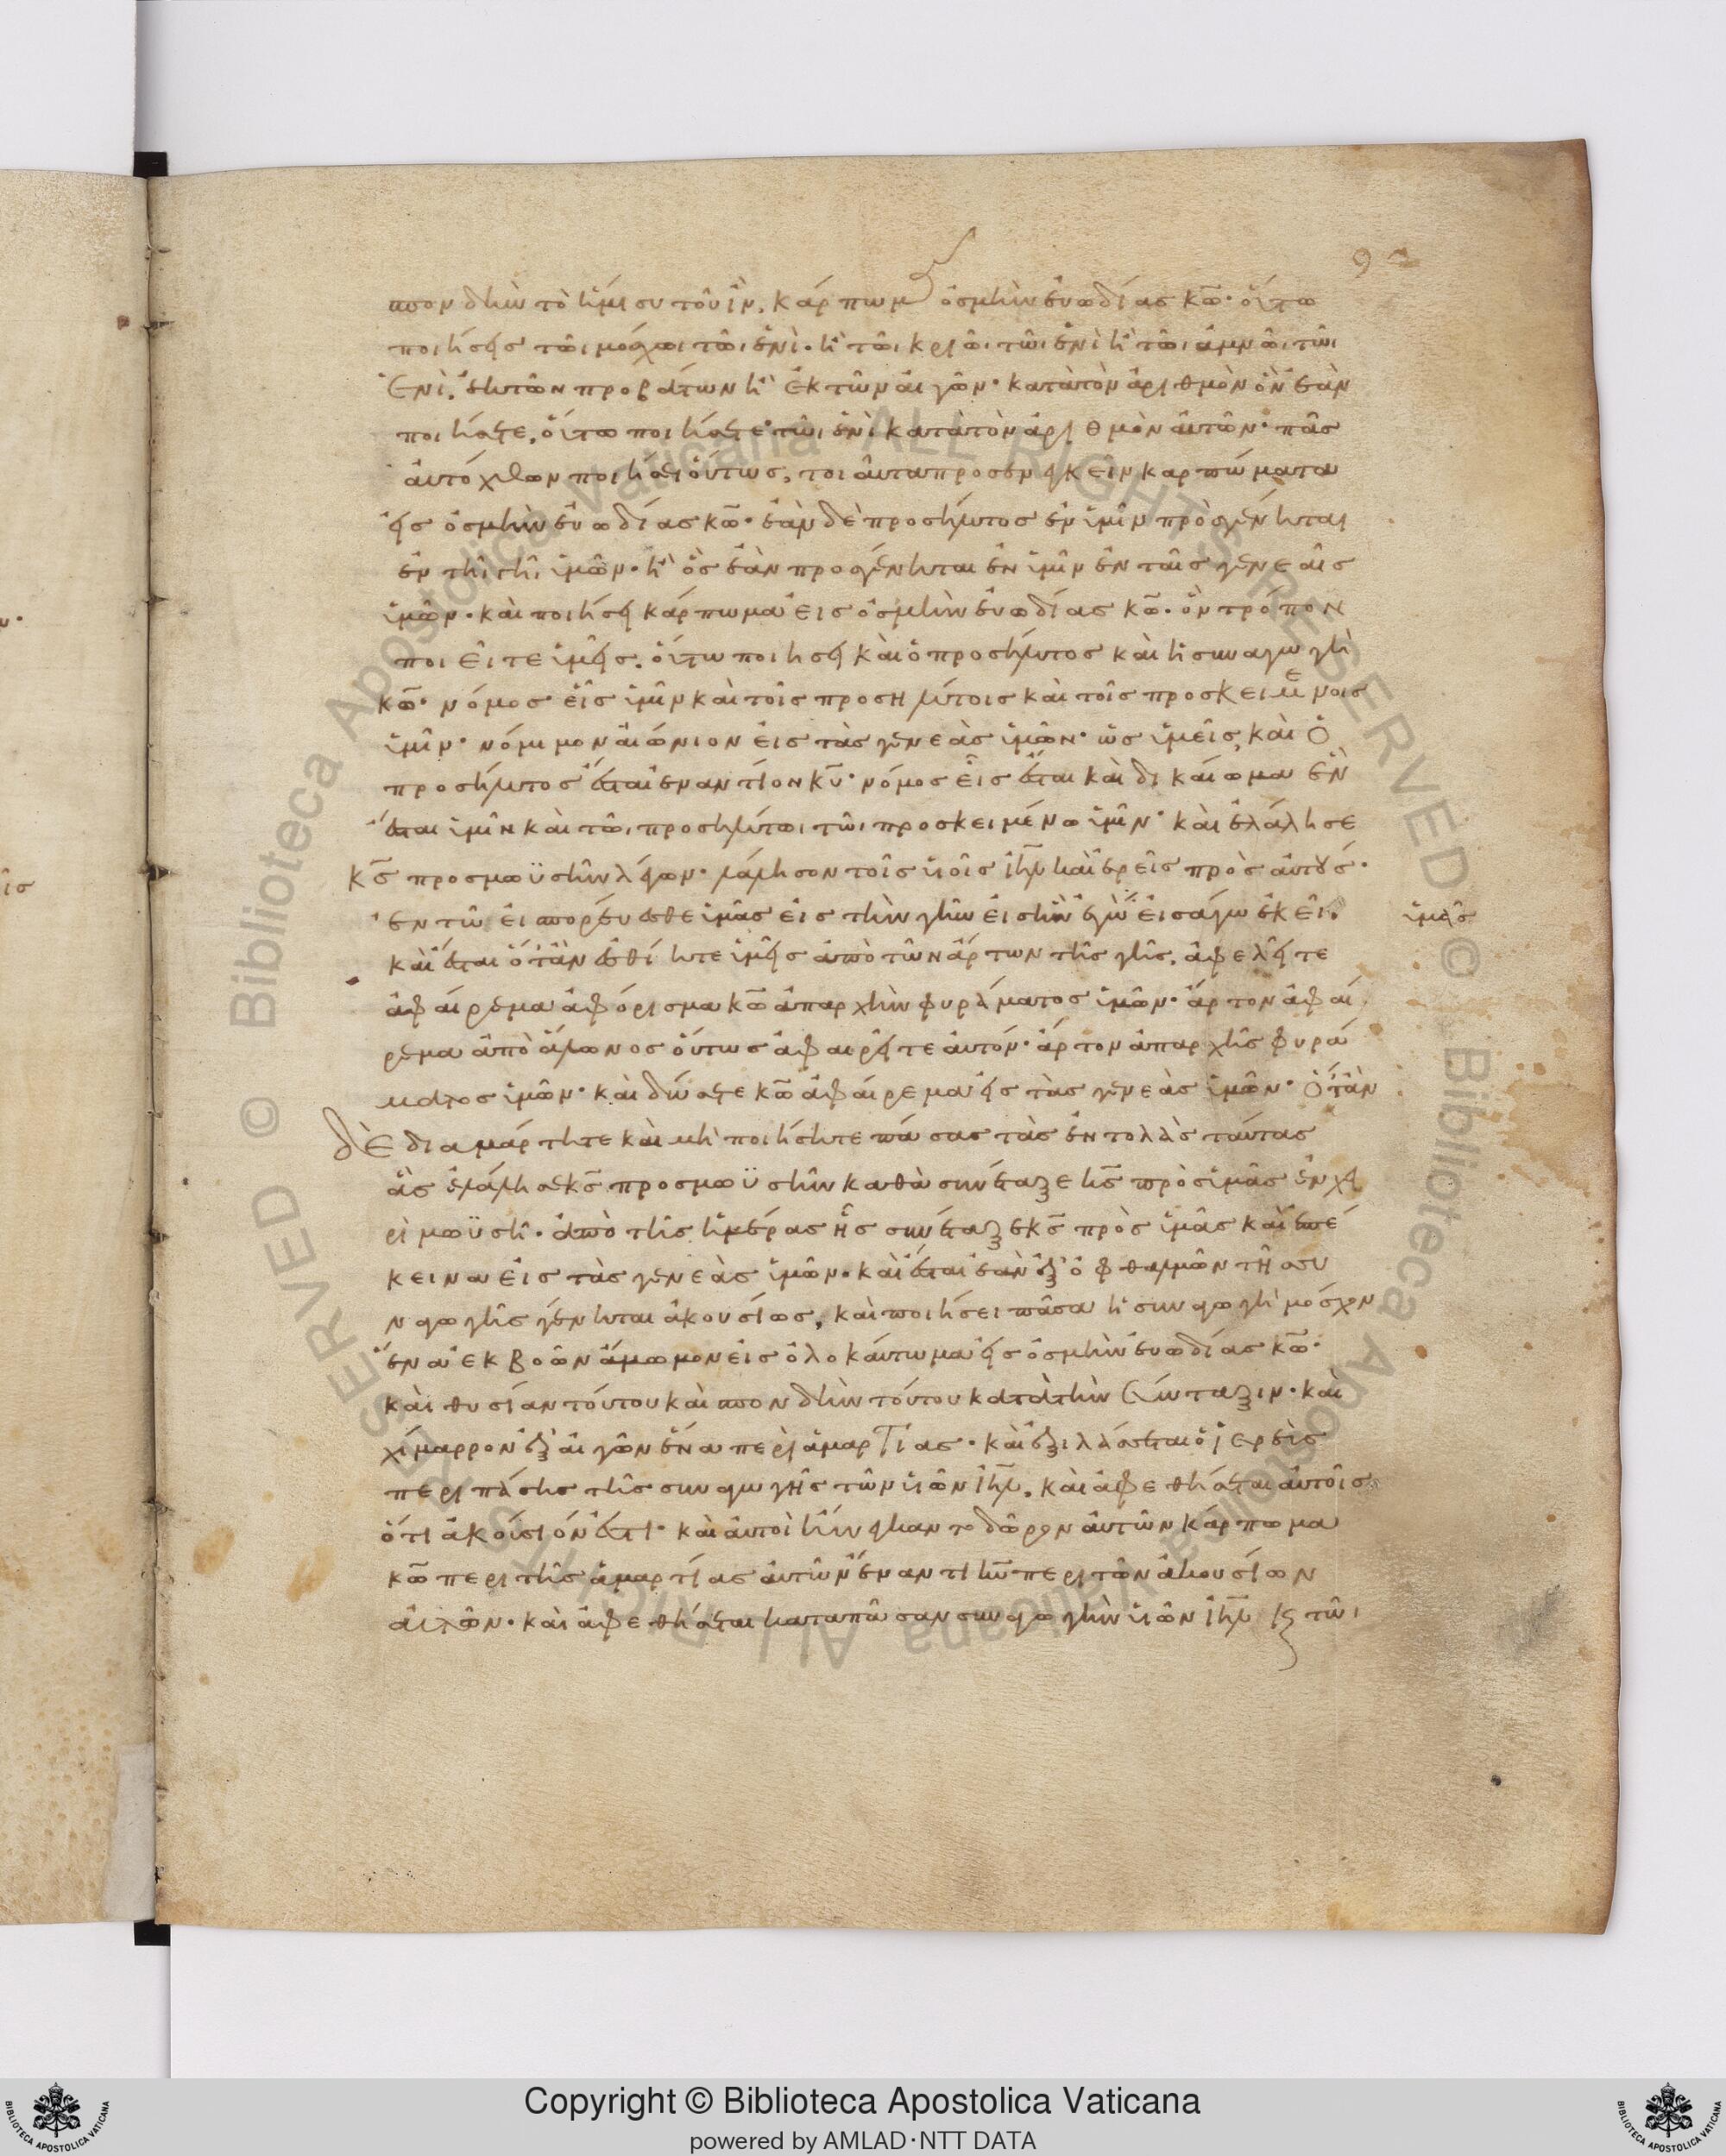 σπονδὴν τὸ ἥμισυ τοῦ ἲν. κάρπωμα ὀσμὴν εὐωδίας κ̅ω̅· οὕτω
ποιήσεις τῶι μόσχωι τῶι ἑνὶ· ἢ τῶι κριῶι τῶι ἑνὶ ἢ τῶι ἀμνῶι τῶι
ἑνὶ, ἐκ τῶν προβάτων ἢ ἐκ τῶν αἰγῶν· κατὰ τὸν ἀριθμὸν ὃν ἐὰν
ποιήσητε, οὕτω ποιήσετε τῶι ἑνὶ κατὰ τὸν ἀριθμὸν αὐτῶν· πᾶς
αὐτόχθων ποιήσει οὕτως, τοιαῦτα προσενεγκεῖν καρπώματα
εἰς ὀσμὴν εὐωδίας κ̅ω̅· ἐὰν δὲ προσήλυτος ἐν ὑμῖν προσγένηται
ἐν τῆι γῆι ὑμῶν· ἢ ὃς ἐὰν προσγένηται ἐν ὑμῖν ἐν ταῖς γενεαῖς
ὑμῶν· καὶ ποιήσει κάρπωμα εἰς ὀσμὴν εὐωδίας κ̅ω̅· ὃν τρόπον
ποιεῖτε ὑμεῖς, οὕτω ποιήσει καὶ ὁ προσήλυτος καὶ ἡ συναγωγὴ
κ̅ω̅· νόμος εἷς ὑμῖν καὶ τοῖς προσηλύτοις καὶ τοῖς προσκειμένοις
ὑμῖν· νόμιμον αἰώνιον εἰς τὰς γενεὰς ὑμῶν· ὡς ὑμεῖς, καὶ ὁ
προσήλυτος ἔσται ἐναντίον κ̅υ̅· νόμος εἷς ἔσται καὶ δικαίωμα ἓν
ἔσται ὑμῖν καὶ τῶι προσηλύτωι τῶι προσκειμένω ὑμῖν· καὶ ἐλάλησε
κ̅ς̅ προς μωϋσῆν λέγων· λάλησον τοῖς υἱοῖς ι̅η̅λ̅ καὶ ἐρεῖς πρὸς αὐτούς·
ἐν τῶ εἰσπορεύεσθε ὑμᾶς εἰς τὴν γῆν εἰς ἣν ἐγὼ εἰσάγω ἐκεῖ. ὑμᾶς
καὶ ἔσται ὅταν ἐσθίητε ὑμεῖς ἀπὸ τῶν ἄρτων τῆς γῆς, ἀφελεῖτε
ἀφαίρεμα ἀφόρισμα κ̅ω̅ ἀπαρχὴν φυράματος ὑμῶν· ἄρτον ἀφαί
ρεμα ἀπὸ ἅλωνος οὕτως ἀφαιρεῖτε αὐτόν· ἄρτον ἀπαρχῆς φυρά
ματος ὑμῶν· καὶ δώσετε κ̅ω̅ ἀφαίρεμα εἰς τὰς γενεὰς ὑμῶν· Ὅταν
δὲ διαμάρτητε καὶ μὴ ποιήσητε πάσας τὰς ἐντολὰς ταύτας
ἃς ἐλάλησε κ̅ς̅ προς μωϋσῆν καθὰ συνέταξε κ̅ς̅ πρὸς ὑμᾶς ἐν χει
ρὶ μωϋσῆ· ἀπὸ τῆς ἡμέρας ἧς συνέταξε κ̅ς̅ πρὸς ὑμᾶς καὶ ἐπέ
κεινα εἰς τὰς γενεὰς ὑμῶν· καὶ ἔσται ἐὰν ἐξ ὀφθαλμῶν τῆσ συ
ναγωγῆς γένηται ἀκουσίως, καὶ ποιήσει πᾶσα ἡ συναγωγὴ μόσχον
ἕνα ἐκ βοῶν ἄμωμον εἰς ὁλοκαύτωμα εἰς ὀσμὴν εὐωδίας κ̅ω̅·
καὶ θυσίαν τούτου καὶ σπονδὴν τούτου κατὰ τὴν σύνταξιν· καὶ
χίμαρρον ἐξ αἰγῶν ἕνα περὶ ἁμαρτίας· καὶ ἐξιλάσεται ὁ ἱερεὺς
περι πάσης τῆς συναγωγῆς τῶν υἱῶν ι̅η̅λ̅, καὶ ἀφεθήσεται αὐτοῖς
ὅτι ἀκούσιόν ἐστι· καὶ αὐτοὶ ἤνεγκαν το δῶρον αὐτῶν κάρπωμα
κ̅ω̅ περι τῆς ἁμαρτίας αὐτῶν ἔναντι κ̅υ̅ περι τῶν ἀκουσίων
αὐτῶν· καὶ ἀφεθήσεται κατα πᾶσαν συναγωγὴν υἱῶν ι̅η̅λ̅ κ, τῶι